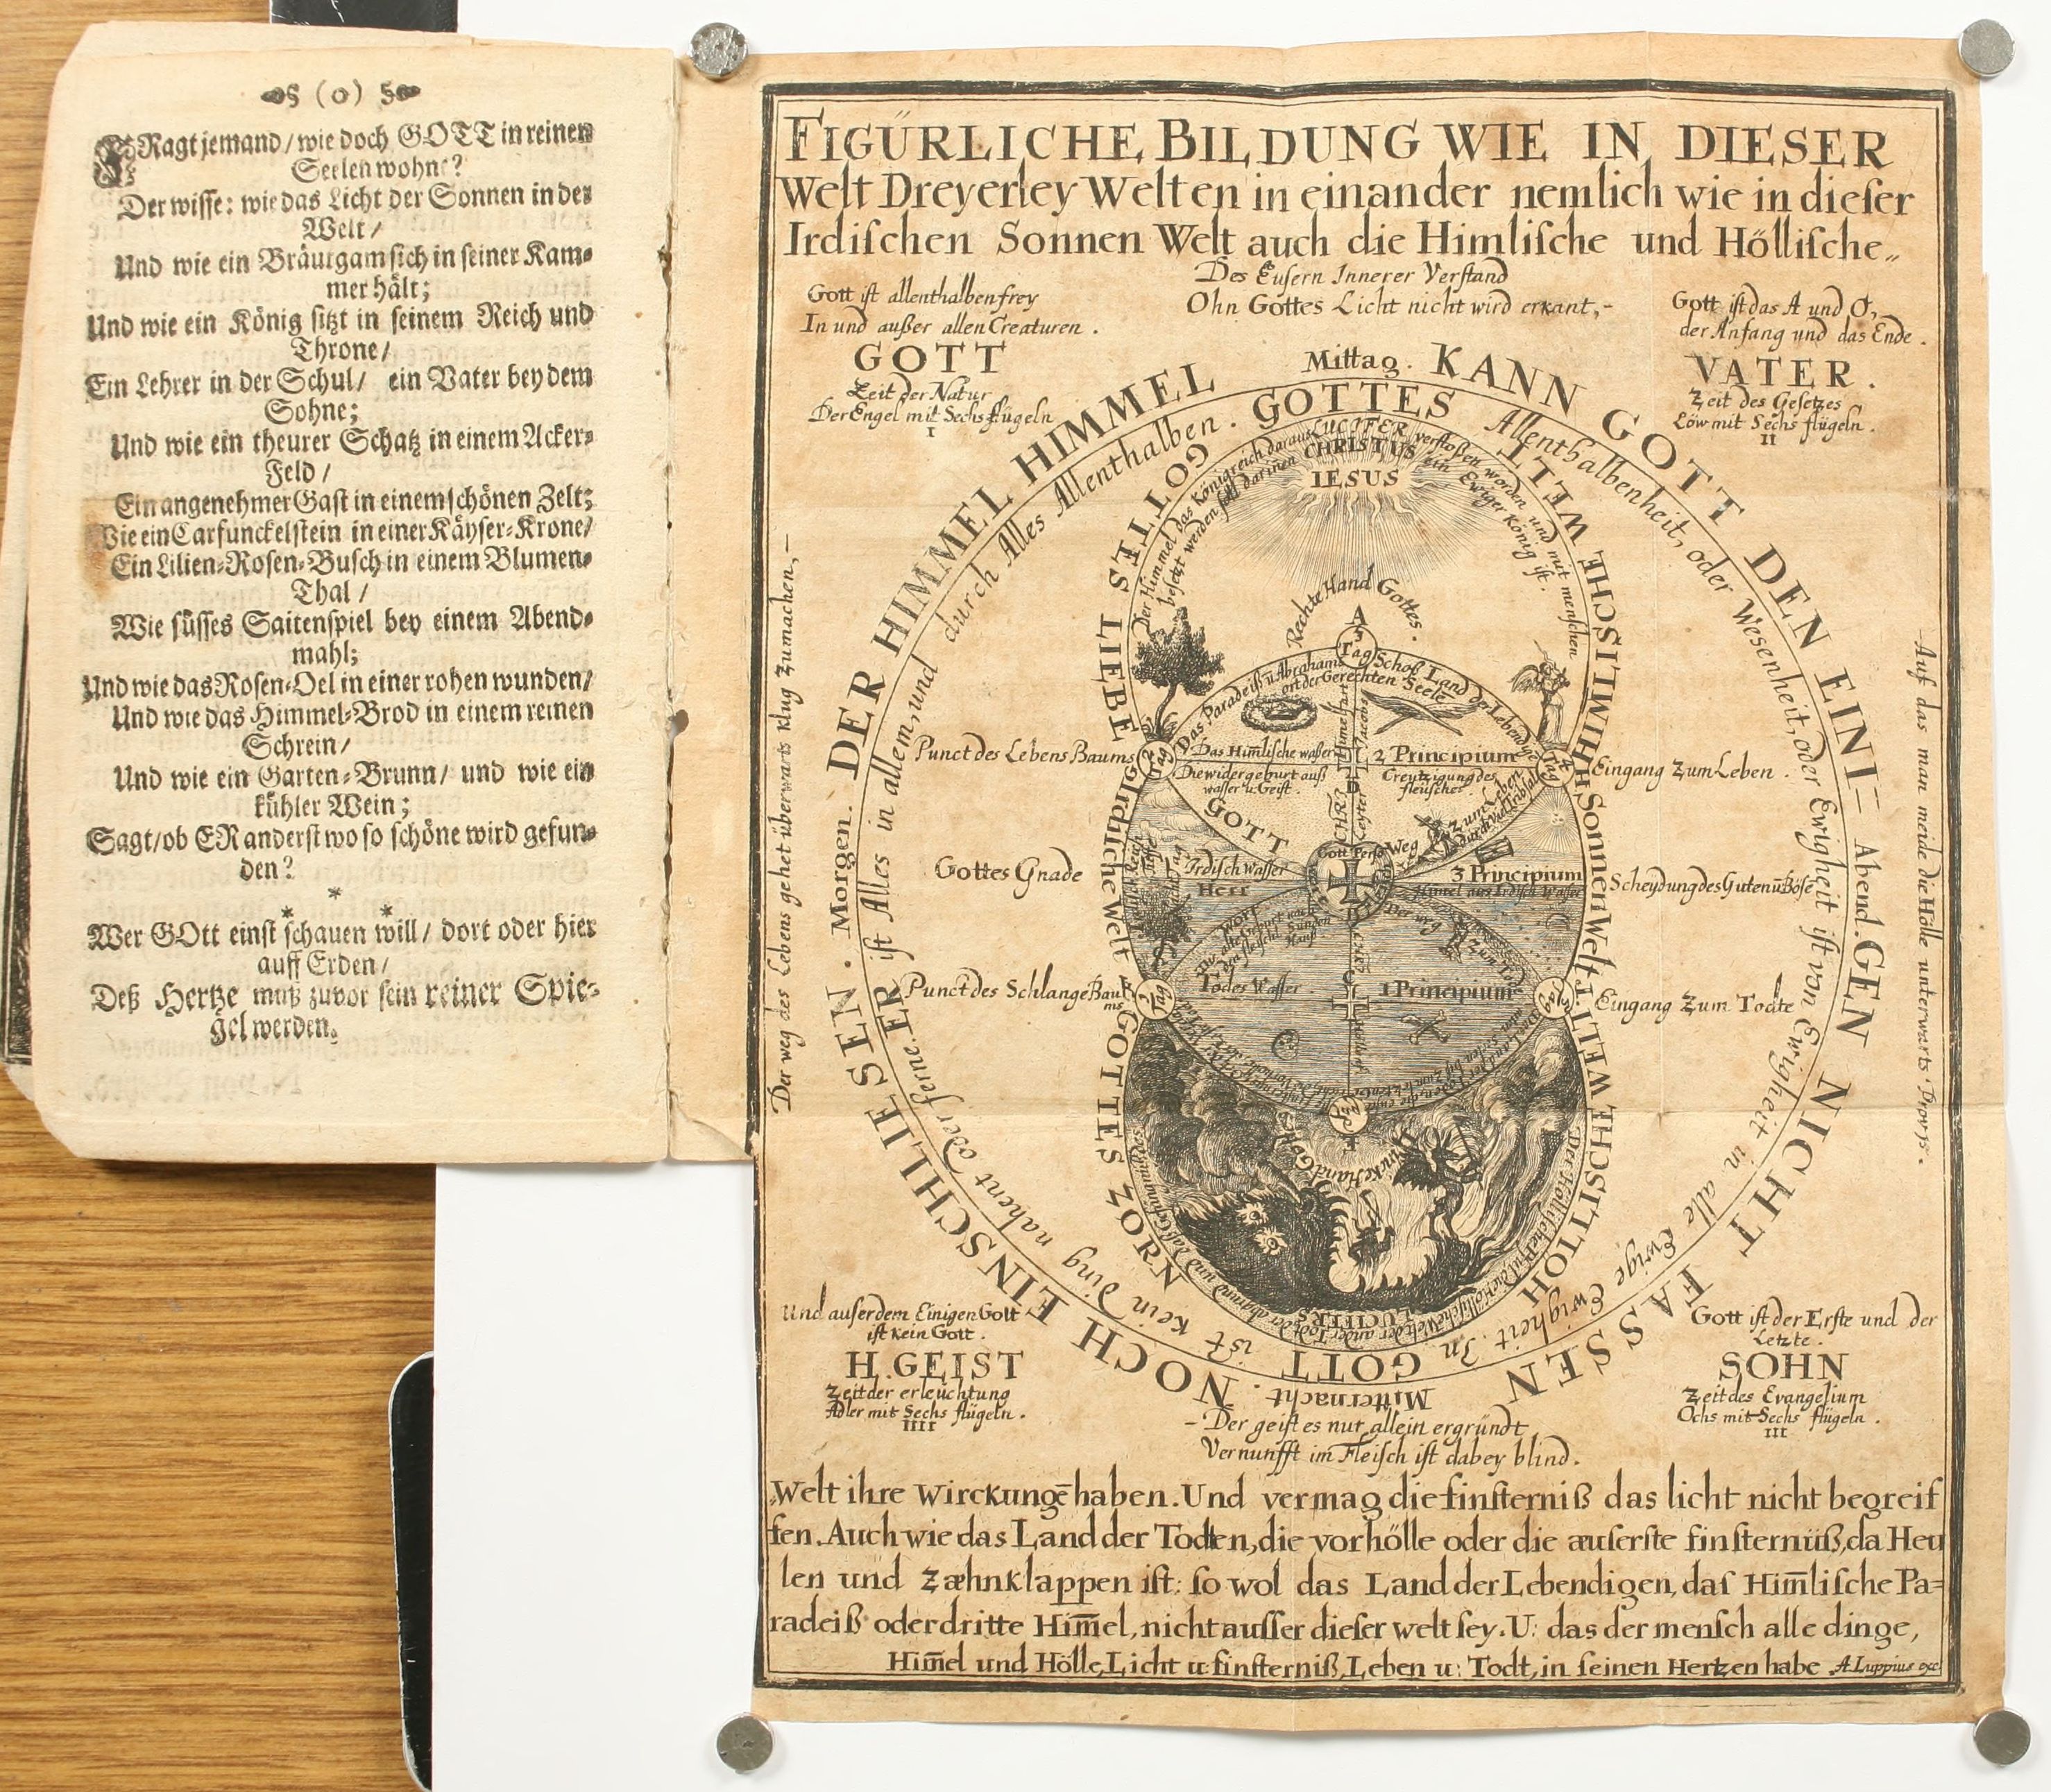 (0)
FRagt jemand / wie doch GOTT in reinen
Seelen wohne?
Der wisse: wie das Licht der Sonnen in der
Welt /
Und wie ein Bräutgam sich in seiner Kam-
mer hält;
Und wie ein König sitzt in seinem Reich und
Throne /
Ein Lehrer in der Schul / ein Vater bey dem
Sohne;
Und wie ein theurer Schatz in einem Acker-
Feld /
Ein angenehmer Gast in einem schönen Zelt;
Wie ein Carfunckelstein in einer Käyser-Krone /
Ein Lilien-Rosen-Busch in einem Blumen-
Thal /
Wie süsses Saitenspiel bey einem Abend-
mahl;
Und wie das Rosen-Oel in einer rohen wunden /
Und wie das Himmel-Brod in einem reinen
Schrein /
Und wie ein Garten-Brunn / und wie ein
kühler Wein;
Sagt / ob ER anderstwo so schöne wird gefun-
den?
* * *
Wer GOtt einst schauen will / dort oder hier
auff Erden /
Deß Hertze muß zuvor sein reiner Spie-
gel werden.
FIGÜRLICHE BILDUNG WIE IN DIESER
Welt Dreyerley Welten in einander nemlich wie in dieſer
Irdiſchen Sonnen Welt auch die Himliſche und Hölliſche„
Des Euſern Innerer Verſtand
Ohn Gottes Licht nicht wird erkant,-
Gott iſt allenthalben frey
In und außer allen Creaturen.
GOTT
Zeit der Natur
Der Engel mit Sechs flügeln
I
Gott iſt das A und O,
der Anfang und das Ende.
VATER.
Zeit des Geſetzes
Löw mit Sechs flügeln.
II
Der weg des Lebens gehet überwarts klug zu machen,-
-Auf das man meide die Hölle unterwarts
Mittag.
Abend.
Mitternacht.
Morgen.
DER HIMMEL HIMMEL HIMMEL KANN GOTT DEN EINI= GEN NICHT FASSEN NOCH EINSCHLIESEN.
ER iſt Alles in allem, und durch Alles Allenthalben.
GOTTES Allenthalbenheit, oder Weſenheit, oder Ewigheit iſt von Ewigheit in alle Ewige Ewigheit. In
GOTT iſt kein Ding nahent oder ferne.
GOTTES LIEBE
HIMLISCHE WELT
Irdiche Welt
Sonnen Welt
GOTTES ZORN
HOLLISCHE WELT
Der Himmel das Königreich daraus LUCIFER verſtoßen worden und mit menſchen
beſetzt werden ſoll darinen CHRISTUS ein Ewiger König iſt.
IESUS
Rechte Hand Gottes.
A
Tag
Das Paradeiß u Abrahams Schoß Land der Lebendigen
ort der Gerechten Seele
Punct des Lebens Baums
Das Himliſche waſſer
2 Principium
Die widergeburt auß
waſſer u. Geiſt.
Creutzigung des
fleiſches
Eingang zum Leben.
GOTT
Weg
zum Leben
Gottes Gnade
Irdiſch Waſſer
Herr
3 Principium
Himel aus Irdiſch Waſſer
Scheydung des Guten u Böſe
Wort
Der weg
zum Tod
Punct des Schlange Bau
ms
Todes Waſſer.
1 Principium
Eingang zum Todte
Lincke Hand Gottes
LUCIFERS
Und auſer dem Einigen Gott
iſt kein Gott.
H. GEIST
Zeit der erleuchtung
Adler mit Sechs flügeln.
IIII
Gott iſt der Erſte und der
Letzte.
SOHN
Zeit des Evangelium
Ochs mit Sechs flügeln.
III
-Der geiſt es nur allein ergründt
Vernunfft im Fleiſch iſt dabey blind.
„Welt ihre wirckungē haben. Und vermag die finſterniß das licht nicht begreif
fen. Auch wie das Land der Todten, die vorhölle oder die æuſerſte finſternüß, da Heu
len und zæhnklappen iſt: ſo wol das Land der Lebendigen, das Himliſche Pa=
radeiß oder dritte Himel, nicht auſſer dieſer welt ſey. U: das der menſch alle dinge,
Himel und Hölle, Licht u: finſterniß, Leben u: Todt, in ſeinen Hertzen habe A. Luppius exc